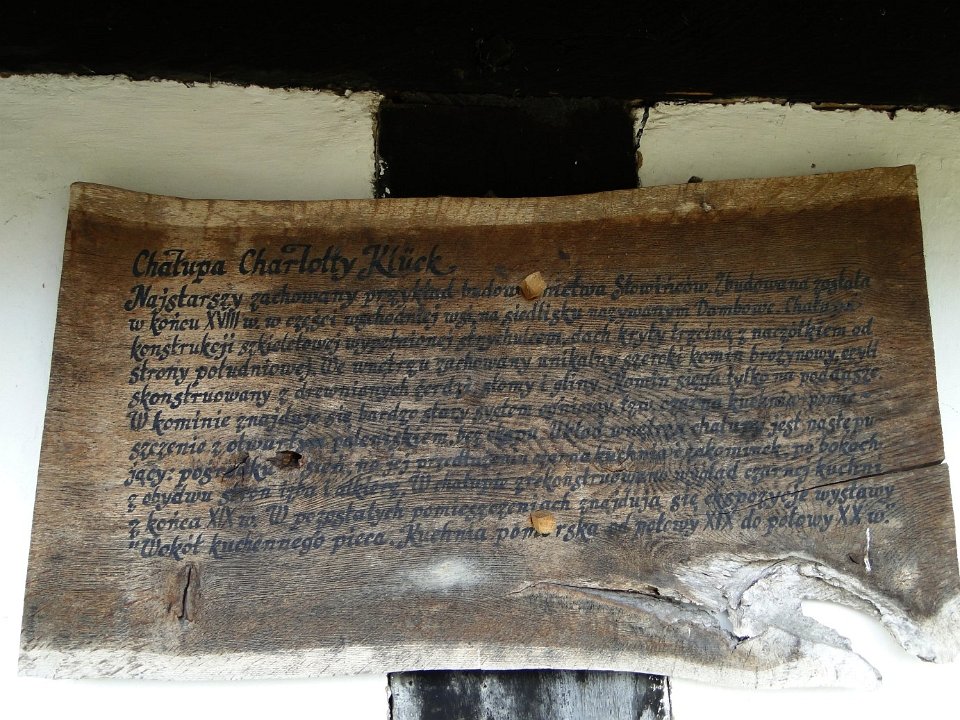 Chałupa Charlotty Klück
Najstarszy zachowany przykład budownictwa Słowińców. Zbudowana została
w końcu XVIII w. w części wschodniej wsi na siedlisku nazywanym Dambowe. Chałupa
konstrukcji szkieletowej wypełnionej strychulcem, dach kryty trzciną z naczółkiem od
strony południowej. We wnętrzu zachowany unikalny szeroki komin brożynowy, czyli
skonstruowany z drewnianych żerdzi, słomy i gliny. Komin sięga tylko na poddasze.
W kominie znajduje się bardzo stary system ogniowy, tzw. czarna kuchnia - pomie-
szczenie z otwartym paleniskiem, bez okapu. Układ wnętrza chałupy jest następu
jący: pośrodku sień, na jej przedłużeniu czarna kuchnia i zakominek, po bokach
z obydwu stron izba i alkierz. W chałupie zrekonstruowano wygląd czarnej kuchni
z końca XIX w. W pozostałych pomieszczeniach znajdują się ekspozycje wystawy
"Wokół kuchennego pieca. Kuchnia pomorska od połowy XIX do połowy XX w."